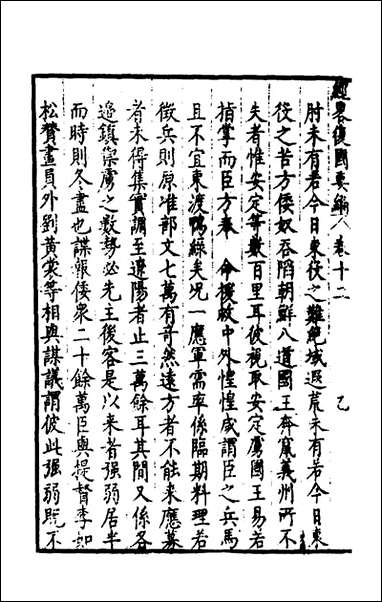 經畧復國要編 卷十二 乙
肘未有若今日東伇之難絶域遐荒未有若今日東
伇之苦方倭奴吞陷朝鮮八道國王奔竄義州所不
失者惟安定等數百里耳彼視取安定虜國王易若
指掌而臣方奉 命機救中外惶惶咸謂臣之兵馬
且不宜東渡鴨綠矣况一應軍需率係臨期料理若
徵兵則原准部文七萬有奇然遠方者不能來應募
者未得集實謂至遼陽者止三萬餘耳其間又係各
邉鎮集虜之数勢必先王後客是以来者强弱居半
而時則冬盡也諜報倭衆二十餘萬臣與提督李如
松贊畫員外劉黃裳等相與謀議謂彼此强弱旣不